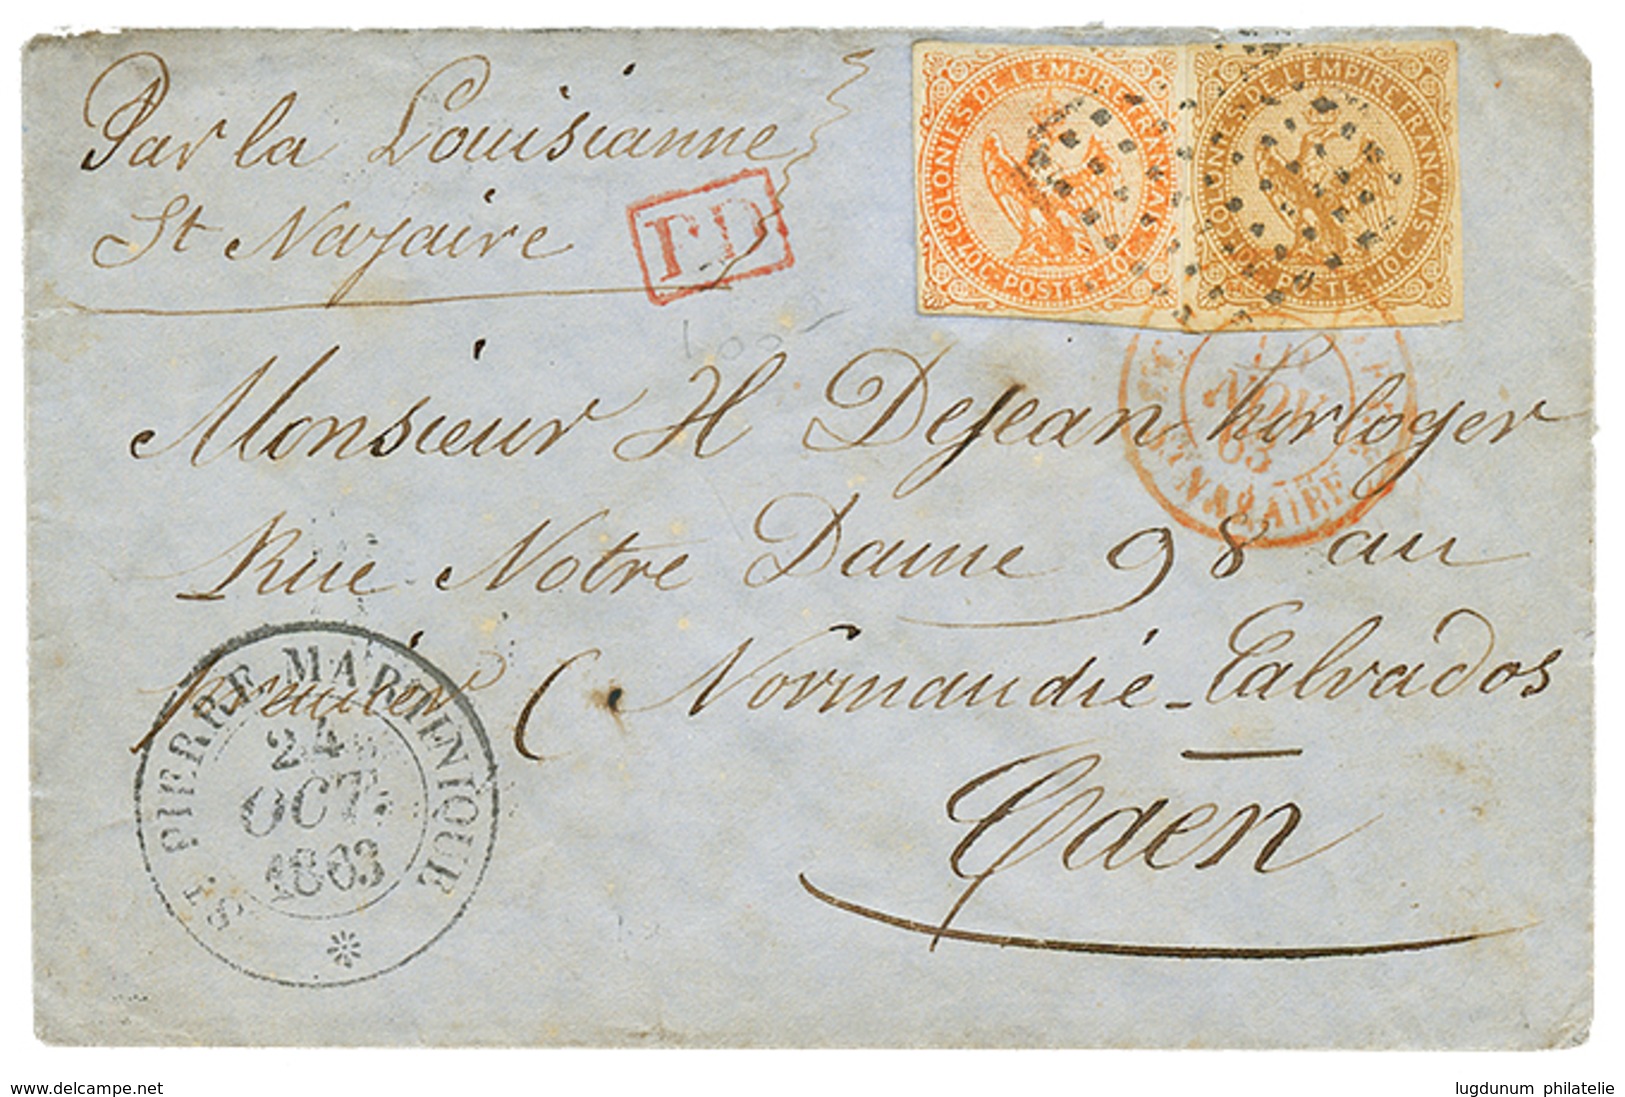 Par la Louisianne
St Nazaire
P.D
COLONIES DE L'EMPIRE FRANÇAIS
40C·POSTES·40C
COLONIES DE L'EMPIRE FRANÇAIS
10C·POSTES·10C
NOV
63
ST NAZAIRE
Monsieur H Dejean horloger
Rue Notre Dame 98 au
premier Normandie - Calvados
Caen
ST. PIERRE MARTINIQUE
24
OCT
1863
www.delcampe.net
lugdunum philatelie